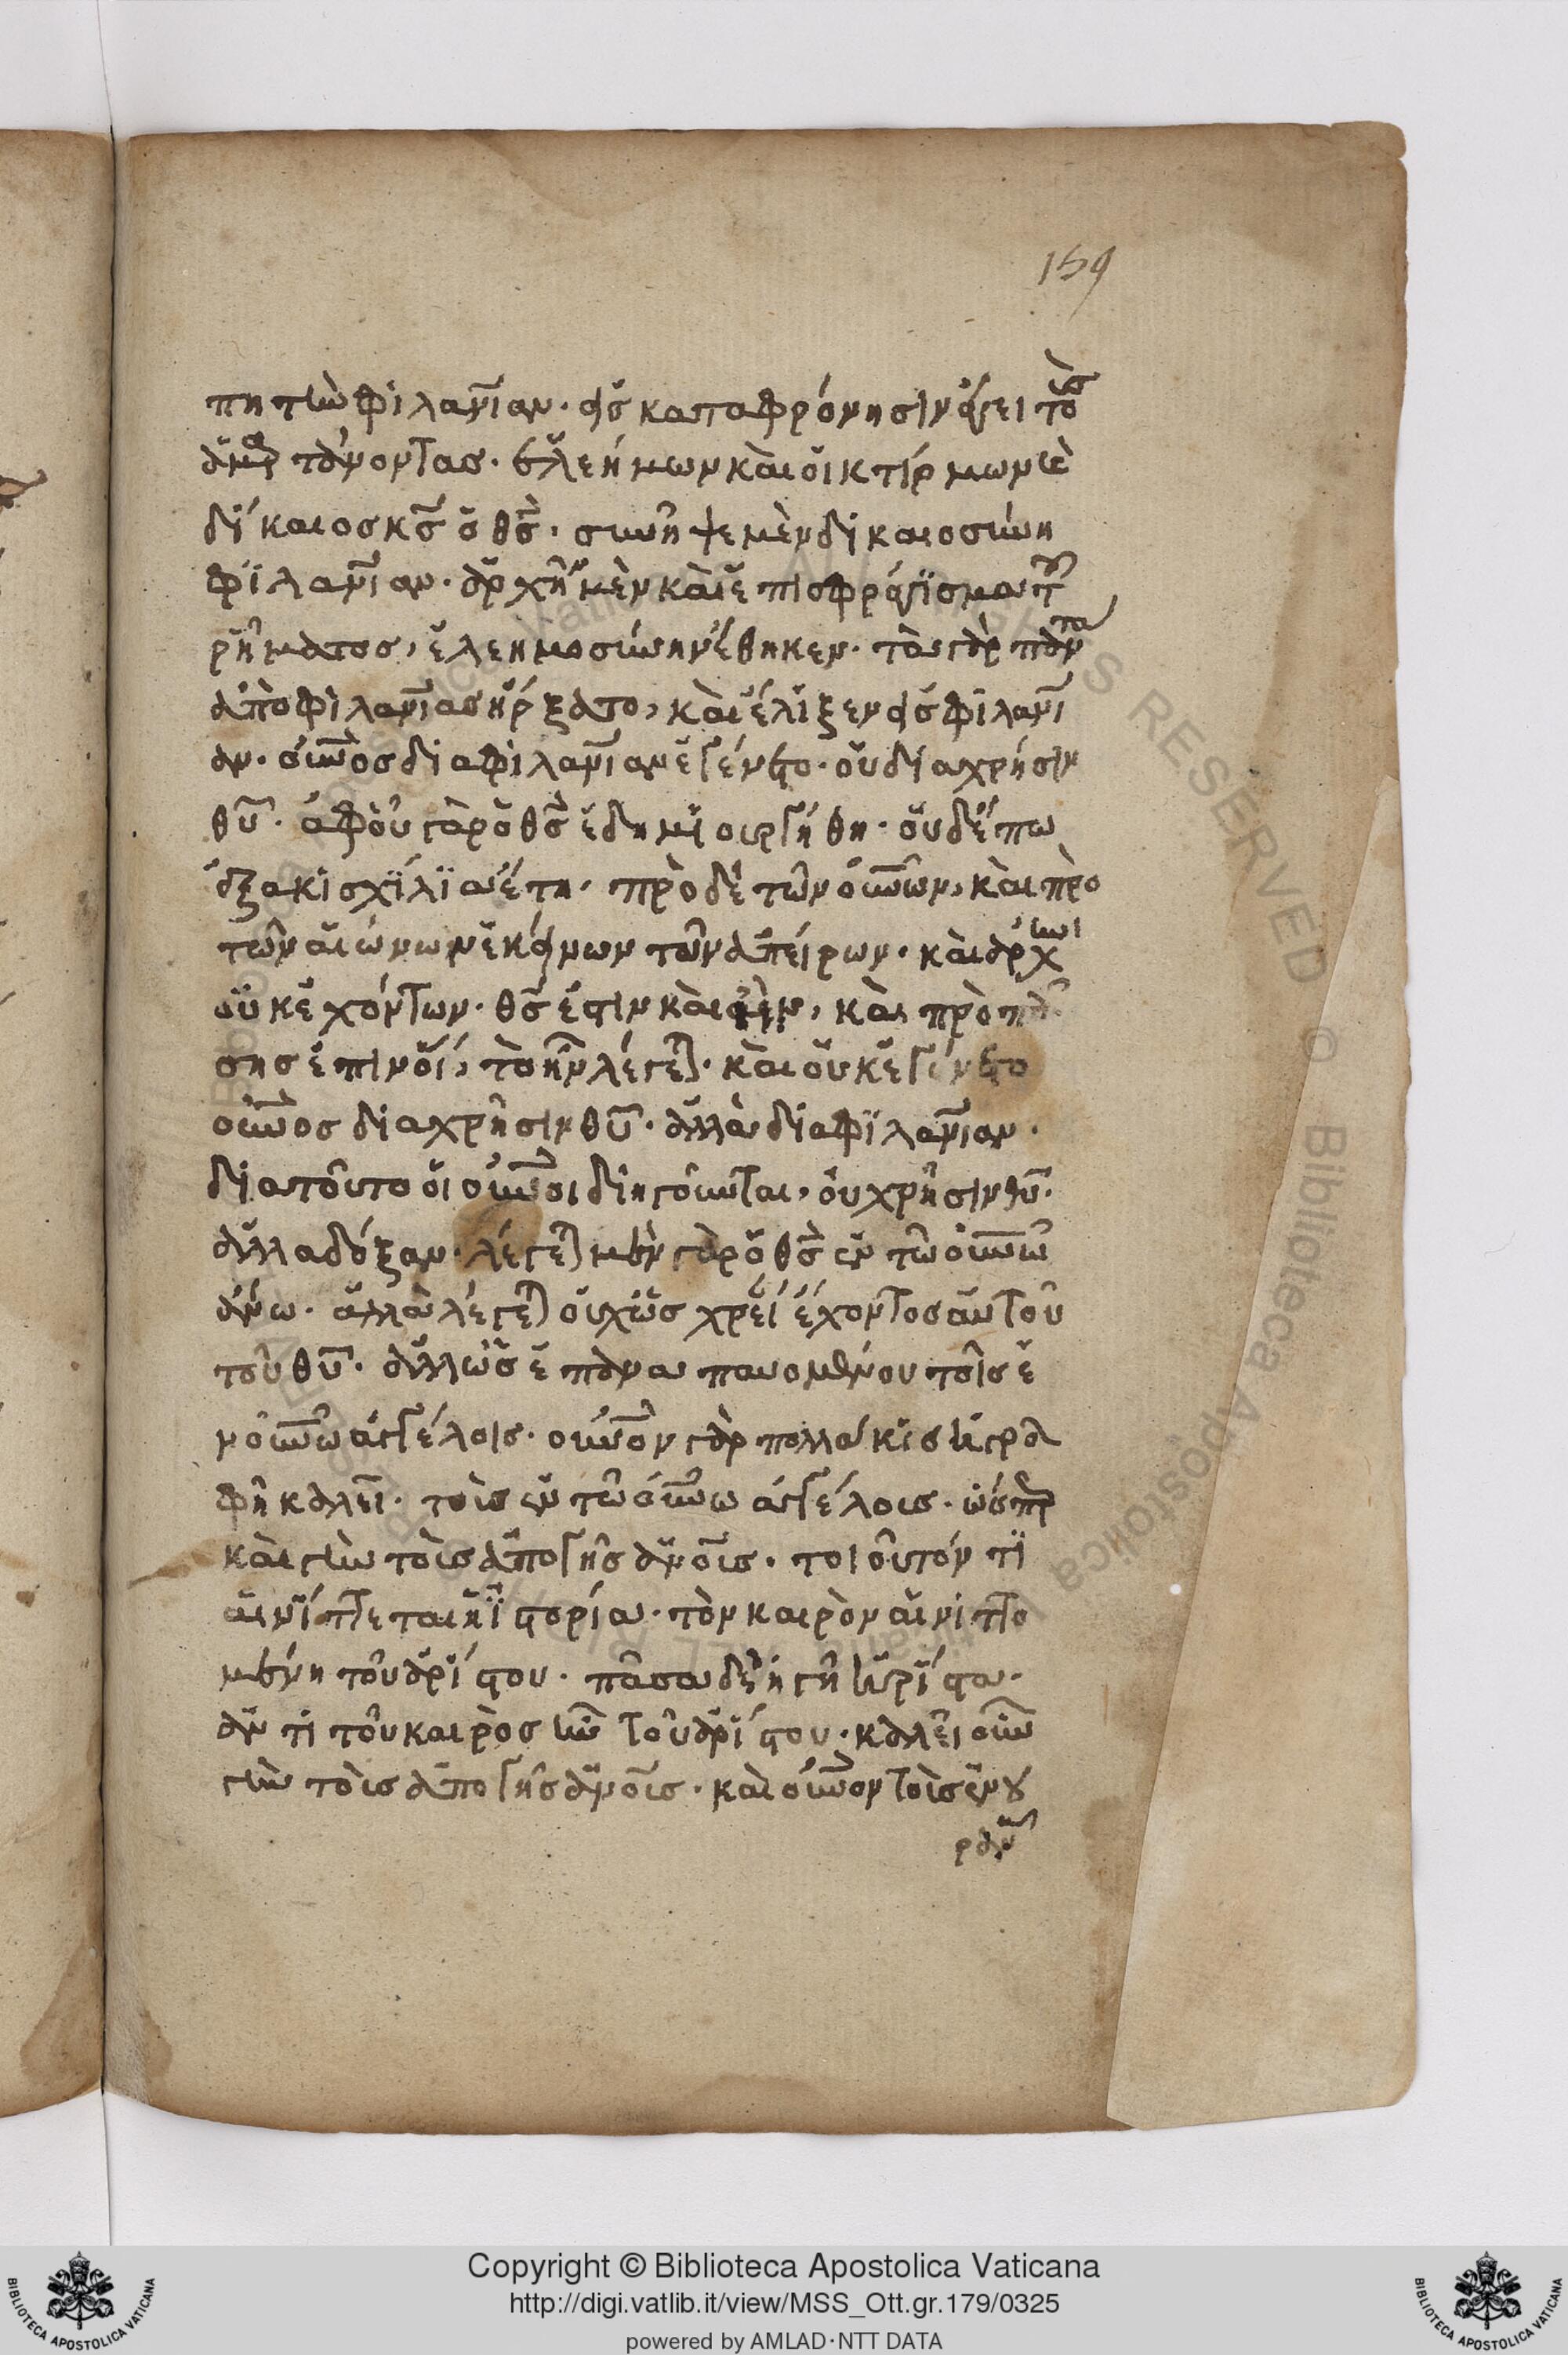 159
πη τὴν φιλανίαν· εἰς καταφρόνησιν ἄγει τοὺς
ἁμαρτάνοντας· ἐλεήμων καὶ οἰκτίρμων καὶ
δίκαιος κς ὁ θς· συνῆψε μὲν δικαιοσύνη
φιλανίαν· ἀρχὴν μὲν καὶ ἐπισφράγισμα τοῦ
ῥήματος, ἐλεημοσύνην ἔθηκεν· τὰ γὰρ πάντα
ἀπὸ φιλανίας ἤρξατο, καὶ ἔληξεν εἰς φιλανί
αν· οὐνος δια φιλανίαν ἐγένετο· οὐ δια χρῆσιν
θυ· ἀφοῦ γὰρ ὁ θς ἐδημιουργήθη· οὐδέπω
ἑξακισχίλια ἔτη· πρὸ δὲ τῶν οὐνων, καὶ πρὸ
τῶν αἰώνων ἐκείνων τῶν ἀπείρων· καὶ ἀρχὴν
οὐκ ἐχόντων· θς ἐστιν καὶ ἦν, καὶ πρὸ πά
σης ἐπινοί, τὸ ἦν λέγεται· καὶ οὐκ ἐγένετο
οὐνος δια χρῆσιν θυ· ἀλλὰ δια φιλανίαν·
δια τοῦτο οἱ οὐνοι διηγοῦνται, οὐ χρῆσιν θυ·
ἀλλα δόξαν· λέγεται μὲν γὰρ ὁ θς ἐν τῶ οὐνω
ἄνω· ἀλλὰ λέγεται οὐχ ὡς χρεί ἔχοντος αὐτοῦ
τοῦ θυ· ἀλλ ὡς ἐπαναπαυομένου τοῖς ἐ
ν οὐνω ἀγγέλοις· οὐνον γὰρ πολλάκις ἡ γρα
φὴ καλεῖ· τοῖς ἐν τῶ οὐνω ἀγγέλοις· ὥσπερ
καὶ γῆν τοῖς ἀπο γῆς ἀνοις· τοιοῦτόν τι
αἰνίττεται ἡ ἱστορία· τὸν καιρὸν αἰνιττο
μένη τοῦ ἀρίστου· πᾶσα δὲ ἡ γῆ ἠρίστα·
ἀντὶ τοῦ καιρὸς ἦν τοῦ ἀρίστου· καλεῖ οὖν
γῆν τοῖς ἀπο γῆς ἀνοις· καὶ οὐνον τοῖς ἐν ου
ραν
Copyright © Biblioteca Apostolica Vaticana
http://digi.vatlib.it/view/MSS_Ott.gr.179/0325
powered by AMLAD·NTT DATA
BIBLIOTECA APOSTOLICA VATICANA
BIBLIOTECA APOSTOLICA VATICANA